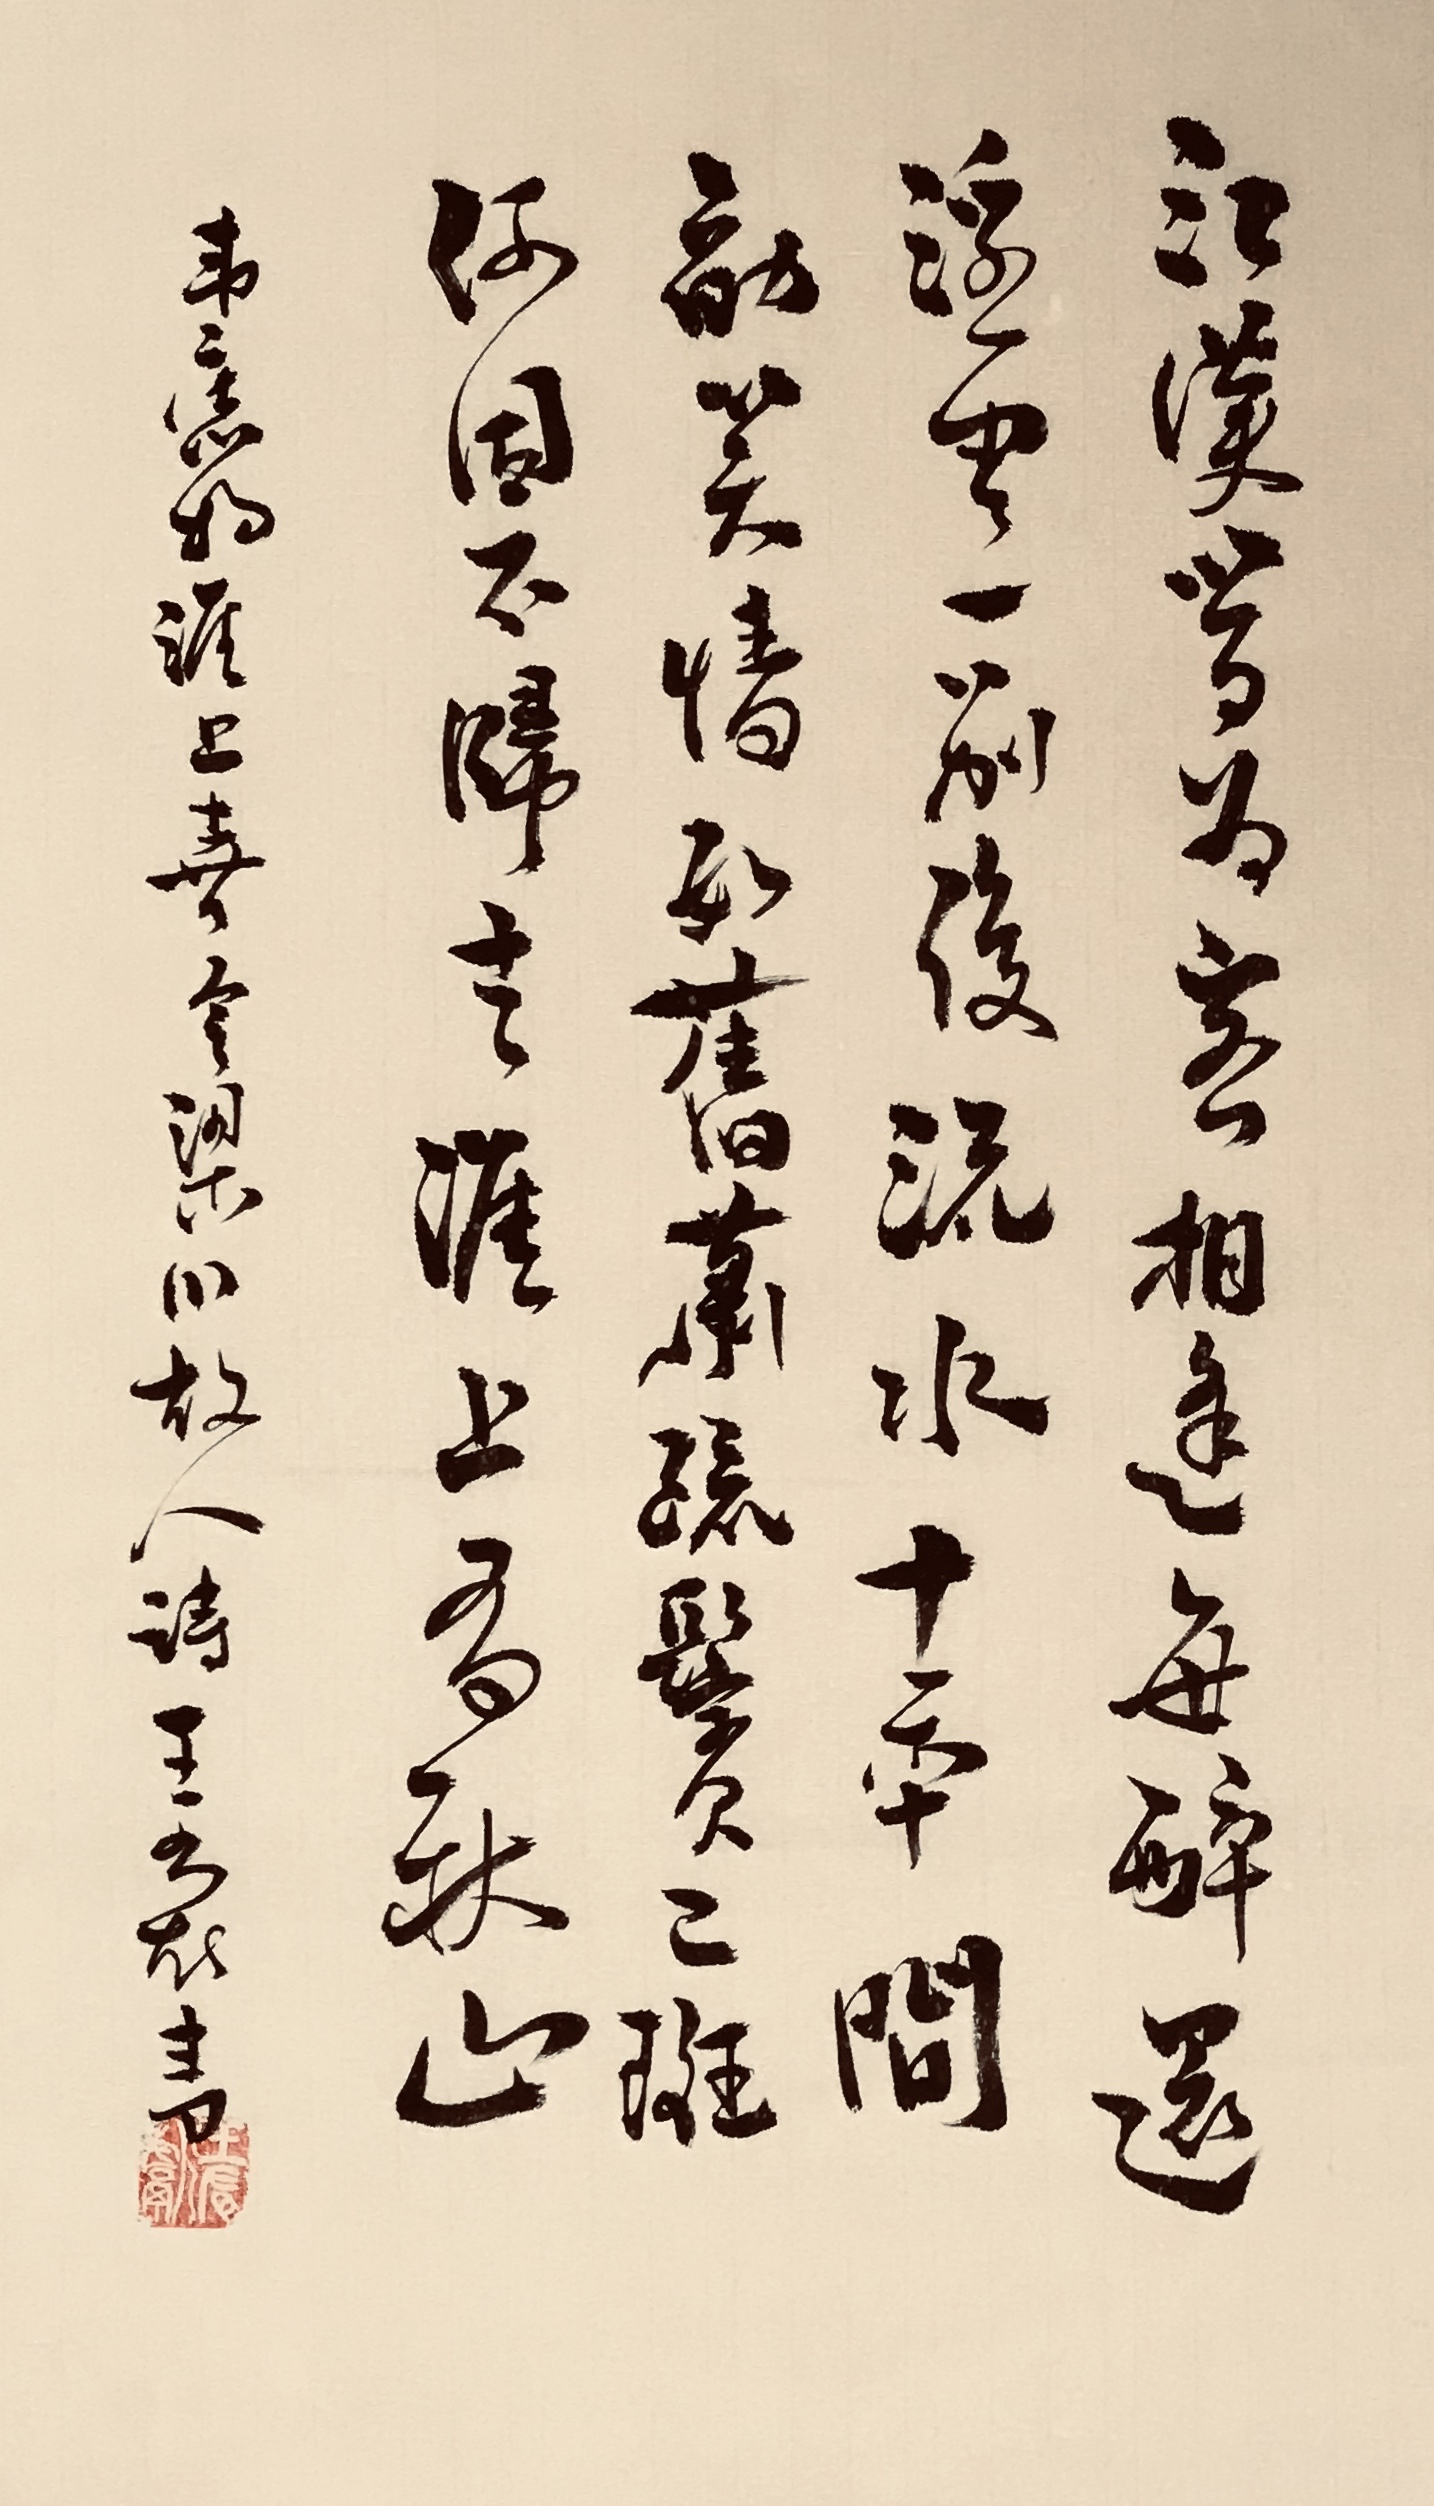 江漢曾為客相逢每醉還
浮雲一別後流水十年間
歡笑情如舊蕭疏鬢已斑
何因不歸去淮上有秋山
韋應物淮上喜會梁川故人詩 王 書